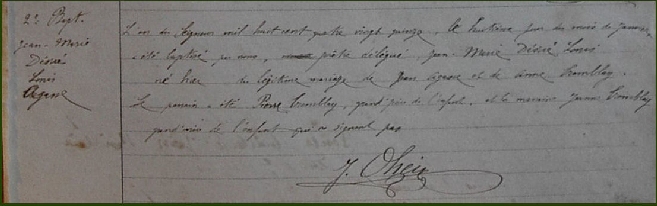 2e Bapt.
Jean-Marie
Désiré
Louis
L'an du Seigneur mil huit cent quatre vingt quinze, le huitième jour du mois de Janvier,
a été baptisé par nous, prêtre délégué, Jean Marie Désiré Louis
né hier du légitime mariage de Jean et de Anne Tremblay.
Le parrain a été Pierre Tremblay, grand père de l'enfant, et la marraine Jeanne Tremblay
grand'mère de l'enfant qui ne signent pas
J.